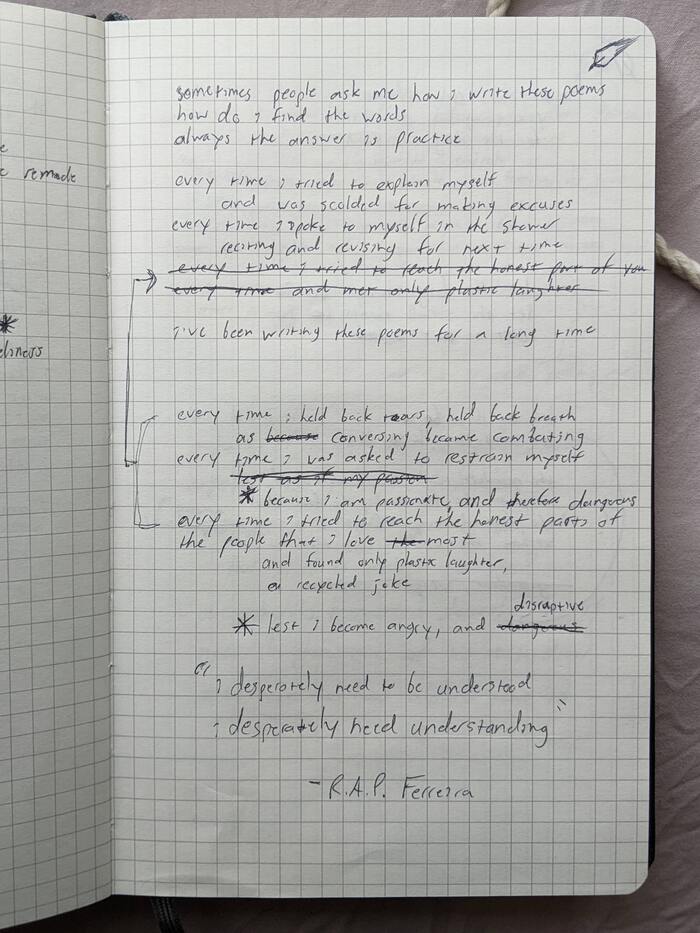 e
e remade
*
eliness
sometimes people ask me how i write these poems
how do i find the words
always the answer is practice
every time i tried to explain myself
and was scolded for making excuses
every time i spoke to myself in the shower
reciting and revising for next time
every time i tried to reach the honest part of you
every time and met only plastic laughter
i've been writing these poems for a long time
every time i held back tears, held back breath
as because conversing became combating
every time i was asked to restrain myself
lest as if my passion
* because i am passionate, and therefore dangrous
every time i tried to reach the honest parts of
the people that i love the most
and found only plastic laughter,
a recycled joke
disruptive
* lest i become angry, and dangrous
"i desperately need to be understood
i desperately need understanding"
- R.A.P. Ferreira